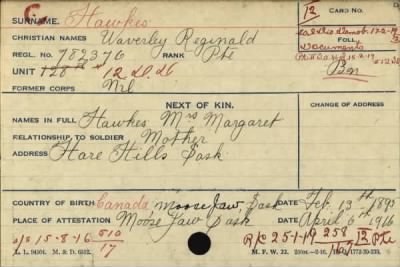 C
SURNAME. Hawkes
CARD NO.
CHRISTIAN NAMES Waverley Reginald
REGL. NO. 782376 RANK Pte
FOLL.
Documents
UNIT 128 12 D.
FORMER CORPS Nil
NEXT OF KIN.
CHANGE OF ADDRESS
NAMES IN FULL Hawkes Mrs Margaret
RELATIONSHIP TO SOLDIER Mother
ADDRESS Hare Hills Sask
COUNTRY OF BIRTH Canada Moose Jaw, Sask DATE Feb. 13th 1895
PLACE OF ATTESTATION Moose Jaw Sask DATE April 6th 916
O/S 15-8-16 810/17
R/C 25-1-19 258 Pte
L. L. 94361. M. & D. 6512.
M. F. W. 22.